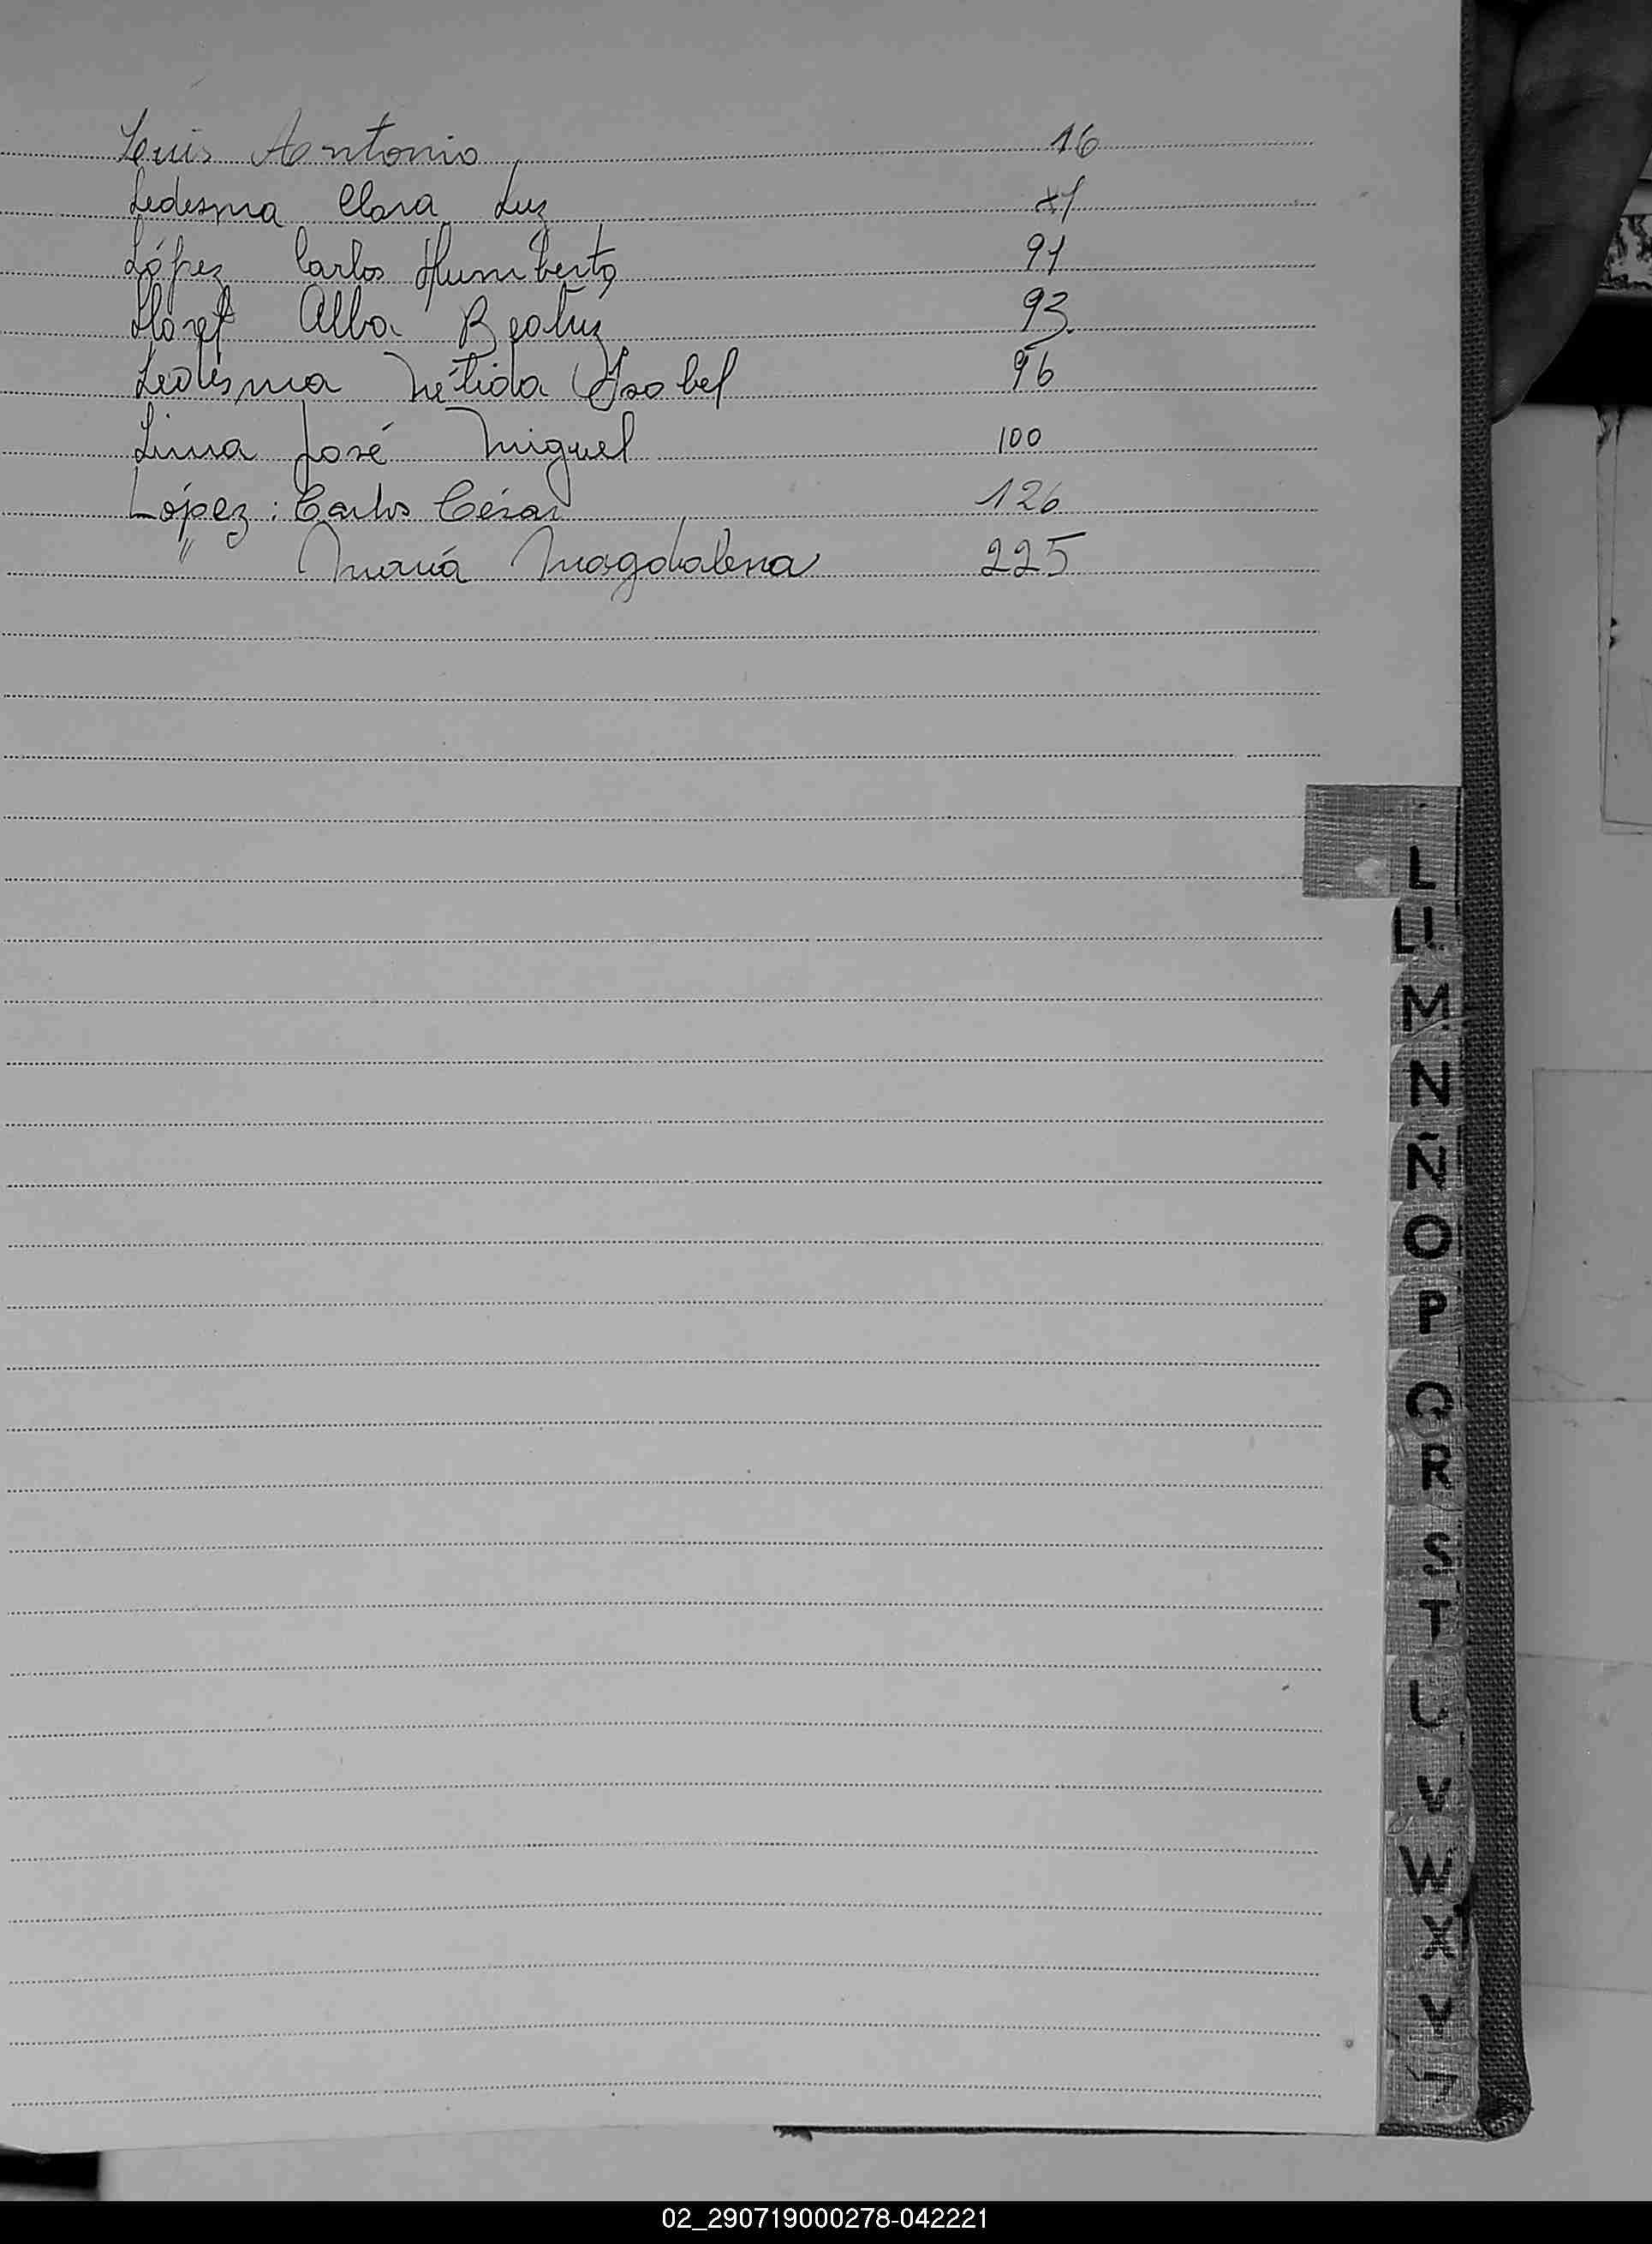 Luis Antonio 16
Ledesma Clara Luz
López Carlos Humberto 91
Alba Beatriz 93
Ledesma Nélida Isabel 96
Lima José Miguel 100
López: Carlos César 126
" María Magdalena 225
L
LL
M
N
Ñ
O
P
Q
R
S
T
U
V
W
X
Y
Z
02_290719000278-042221